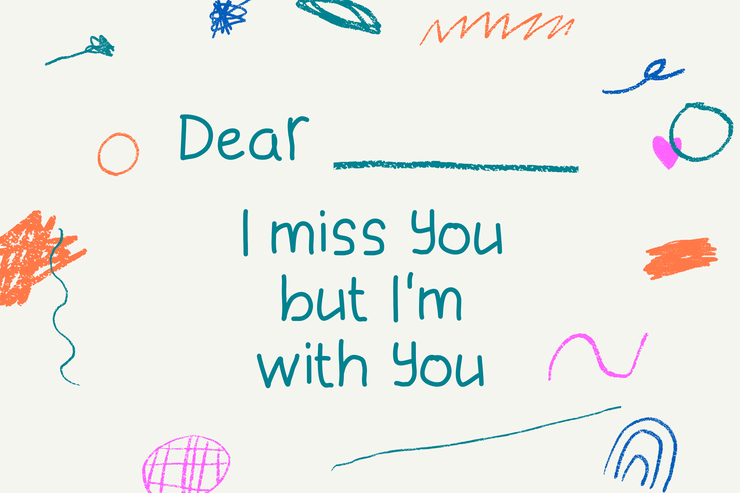 Dear ________
I miss you
but I'm
with you